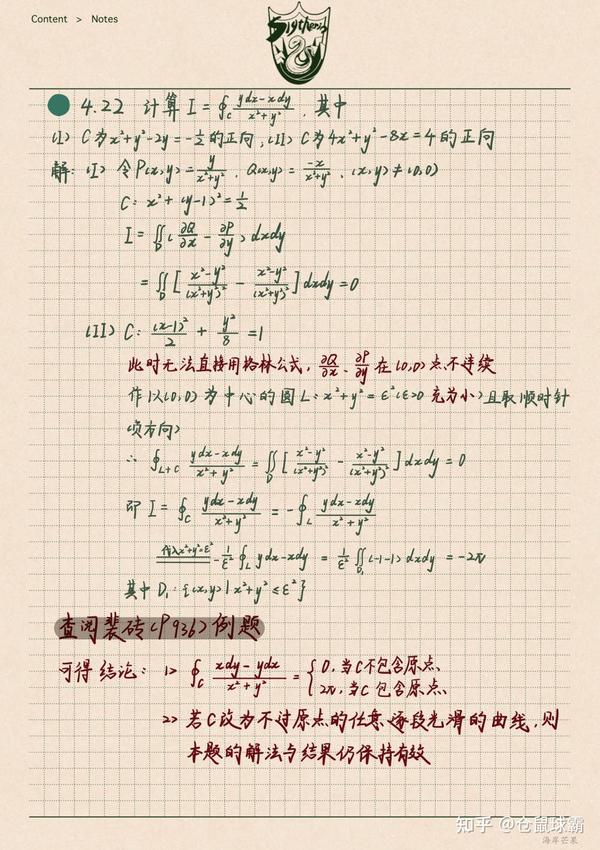 Content > Notes
Slytherin
4.22 计算 I = ∮_C (ydx-xdy)/(x²+y²), 其中
(I) C为x²+y²-2y=-1/2的正向, (II) C为4x²+y²-8x=4的正向
解: (I) 令P(x,y)=y/(x²+y²), Q(x,y)=-x/(x²+y²), (x,y)≠(0,0)
C: x²+(y-1)²=1/2
I=∬_D(∂Q/∂x-∂P/∂y)dxdy
=∬_D[(x²-y²)/(x²+y²)²-(x²-y²)/(x²+y²)²]dxdy=0
(II) C: (x-1)²/2+y²/8=1
此时无法直接用格林公式, ∂Q/∂x、∂P/∂y在(0,0)点不连续
作以(0,0)为中心的圆L: x²+y²=ε²(ε>0充为小)且取顺时针
方向)
∴ ∮_{L+C} (ydx-xdy)/(x²+y²)=∬_D[(x²-y²)/(x²+y²)²-(x²-y²)/(x²+y²)²]dxdy=0
即 I=∮_C (ydx-xdy)/(x²+y²)=-∮_L (ydx-xdy)/(x²+y²)
代入x²+y²=ε² -1/ε² ∮_L ydx-xdy=1/ε² ∬_{D₁}(-1-1)dxdy=-2π
其中D₁:{(x,y)|x²+y²≤ε²}
查阅裴砖(P936)例题
可得结论: 1> ∮_C (xdy-ydx)/(x²+y²)={0,当C不包含原点、
2π,当C包含原点、
2> 若C改为不过原点的任意逐段光滑的曲线,则
本题的解法与结果仍保持有效
知乎 @仓鼠球霸
海岸芒果